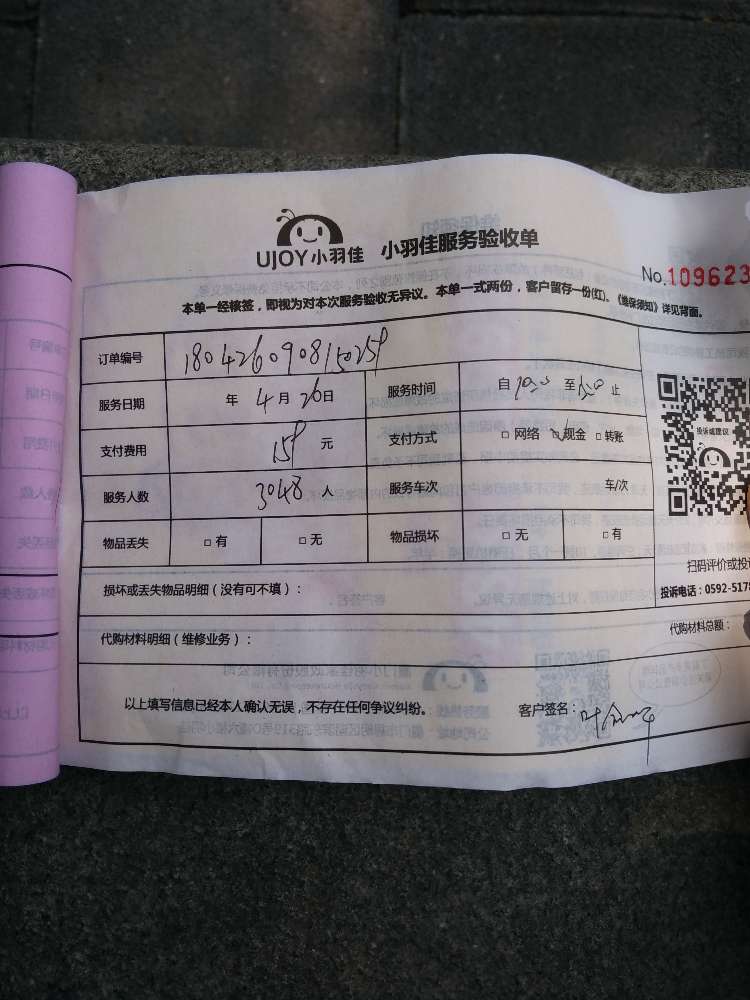 UJOY小羽佳 小羽佳服务验收单
No.109623
本单一经核签，即视为对本次服务验收无异议。本单一式两份，客户留存一份(红)。《维保须知》详见背面。
订单编号 1804260908150259
服务日期 年 4月26日 服务时间 自 至 止
支付费用 159 元 支付方式 □网络 □现金 □转账
服务人数 3048 人 服务车次 车/次
物品丢失 □有 □无 物品损坏 □无 □有
投诉或建议
扫码评价或投诉
投诉电话：0592-5178
损坏或丢失物品明细（没有可不填）：
代购材料明细（维修业务）： 代购材料总额：
以上填写信息已经本人确认无误，不存在任何争议纠纷。 客户签名：